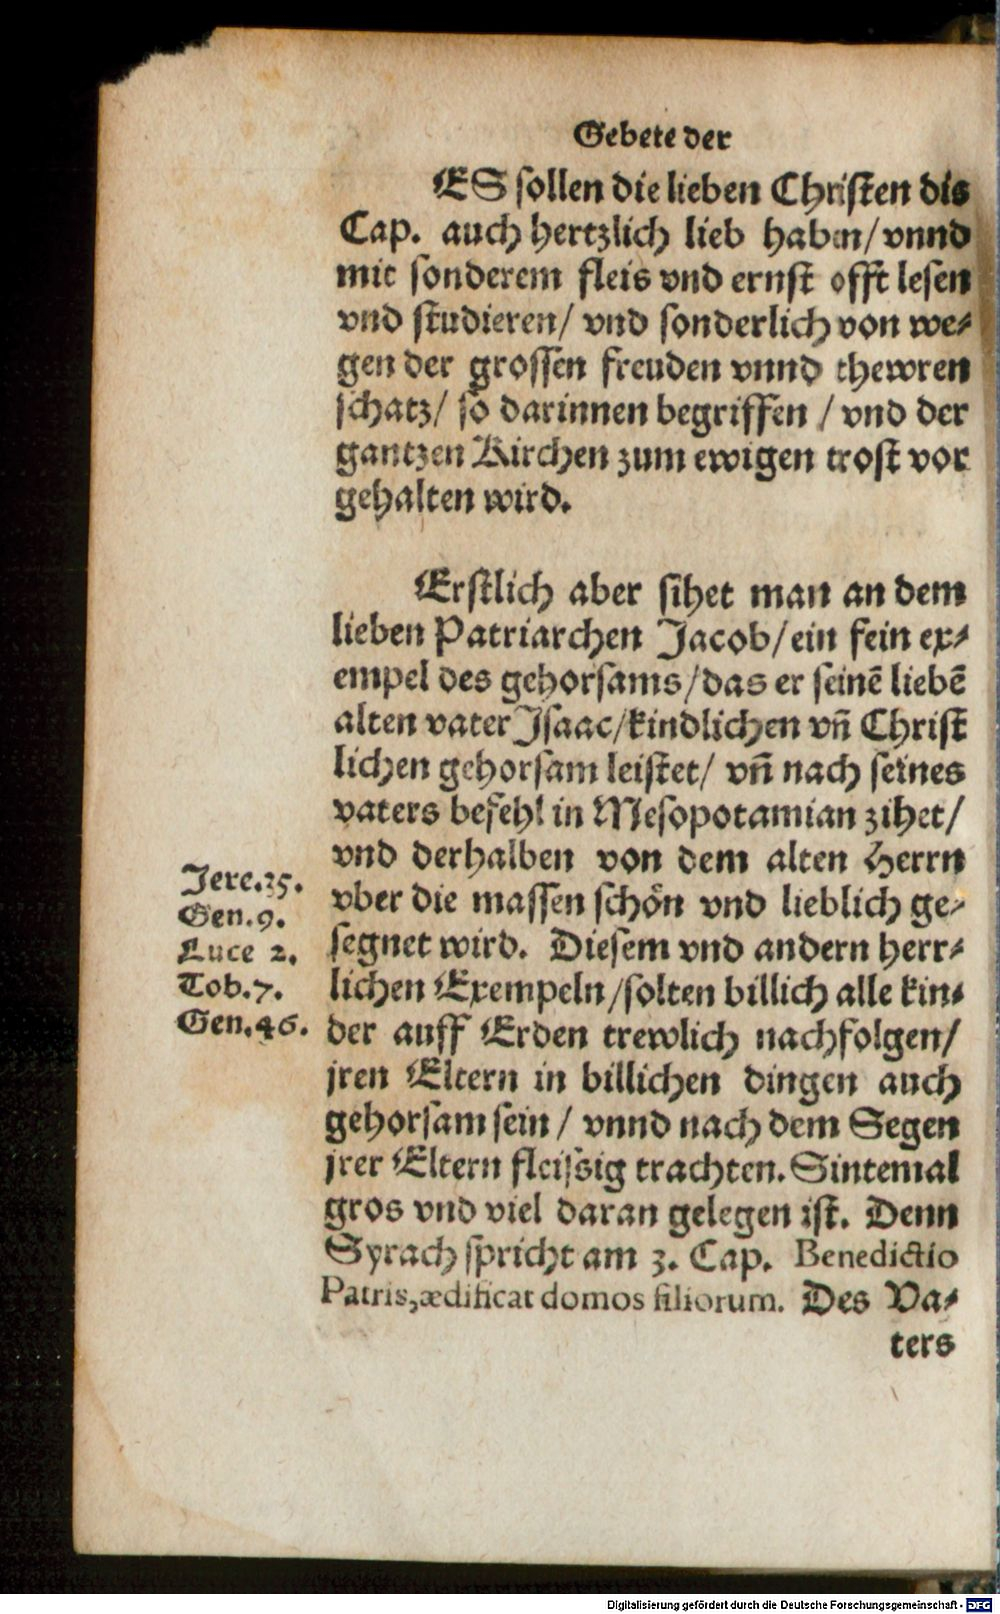 Gebete der
ES sollen die lieben Christen dis
Cap. auch hertzlich lieb haben/ vnnd
mit sonderem fleis vnd ernst offt lesen
vnd studieren/ vnd sonderlich von we-
gen der grossen freuden vnnd thewren
schatz/ so darinnen begriffen / vnd der
gantzen Kirchen zum ewigen trost vor
gehalten wird.
Erstlich aber sihet man an dem
lieben Patriarchen Jacob/ ein fein ex-
empel des gehorsams/ das er seinē liebē
alten vater Isaac/ kindlichen vñ Christ
lichen gehorsam leistet/ vñ nach seines
vaters befehl in Mesopotamian zihet/
vnd derhalben von dem alten Herrn
vber die massen schön vnd lieblich ge-
segnet wird. Diesem vnd andern herr-
lichen Exempeln/ solten billich alle kin-
der auff Erden trewlich nachfolgen/
jren Eltern in billichen dingen auch
gehorsam sein/ vnnd nach dem Segen
jrer Eltern fleissig trachten. Sintemal
gros vnd viel daran gelegen ist. Denn
Syrach spricht am 3. Cap. Benedictio
Patris, ædificat domos filiorum. Des Va-
ters
Jere.35.
Gen.9.
Luce 2.
Tob.7.
Gen.46.
Digitalisierung gefördert durch die Deutsche Forschungsgemeinschaft - DFG